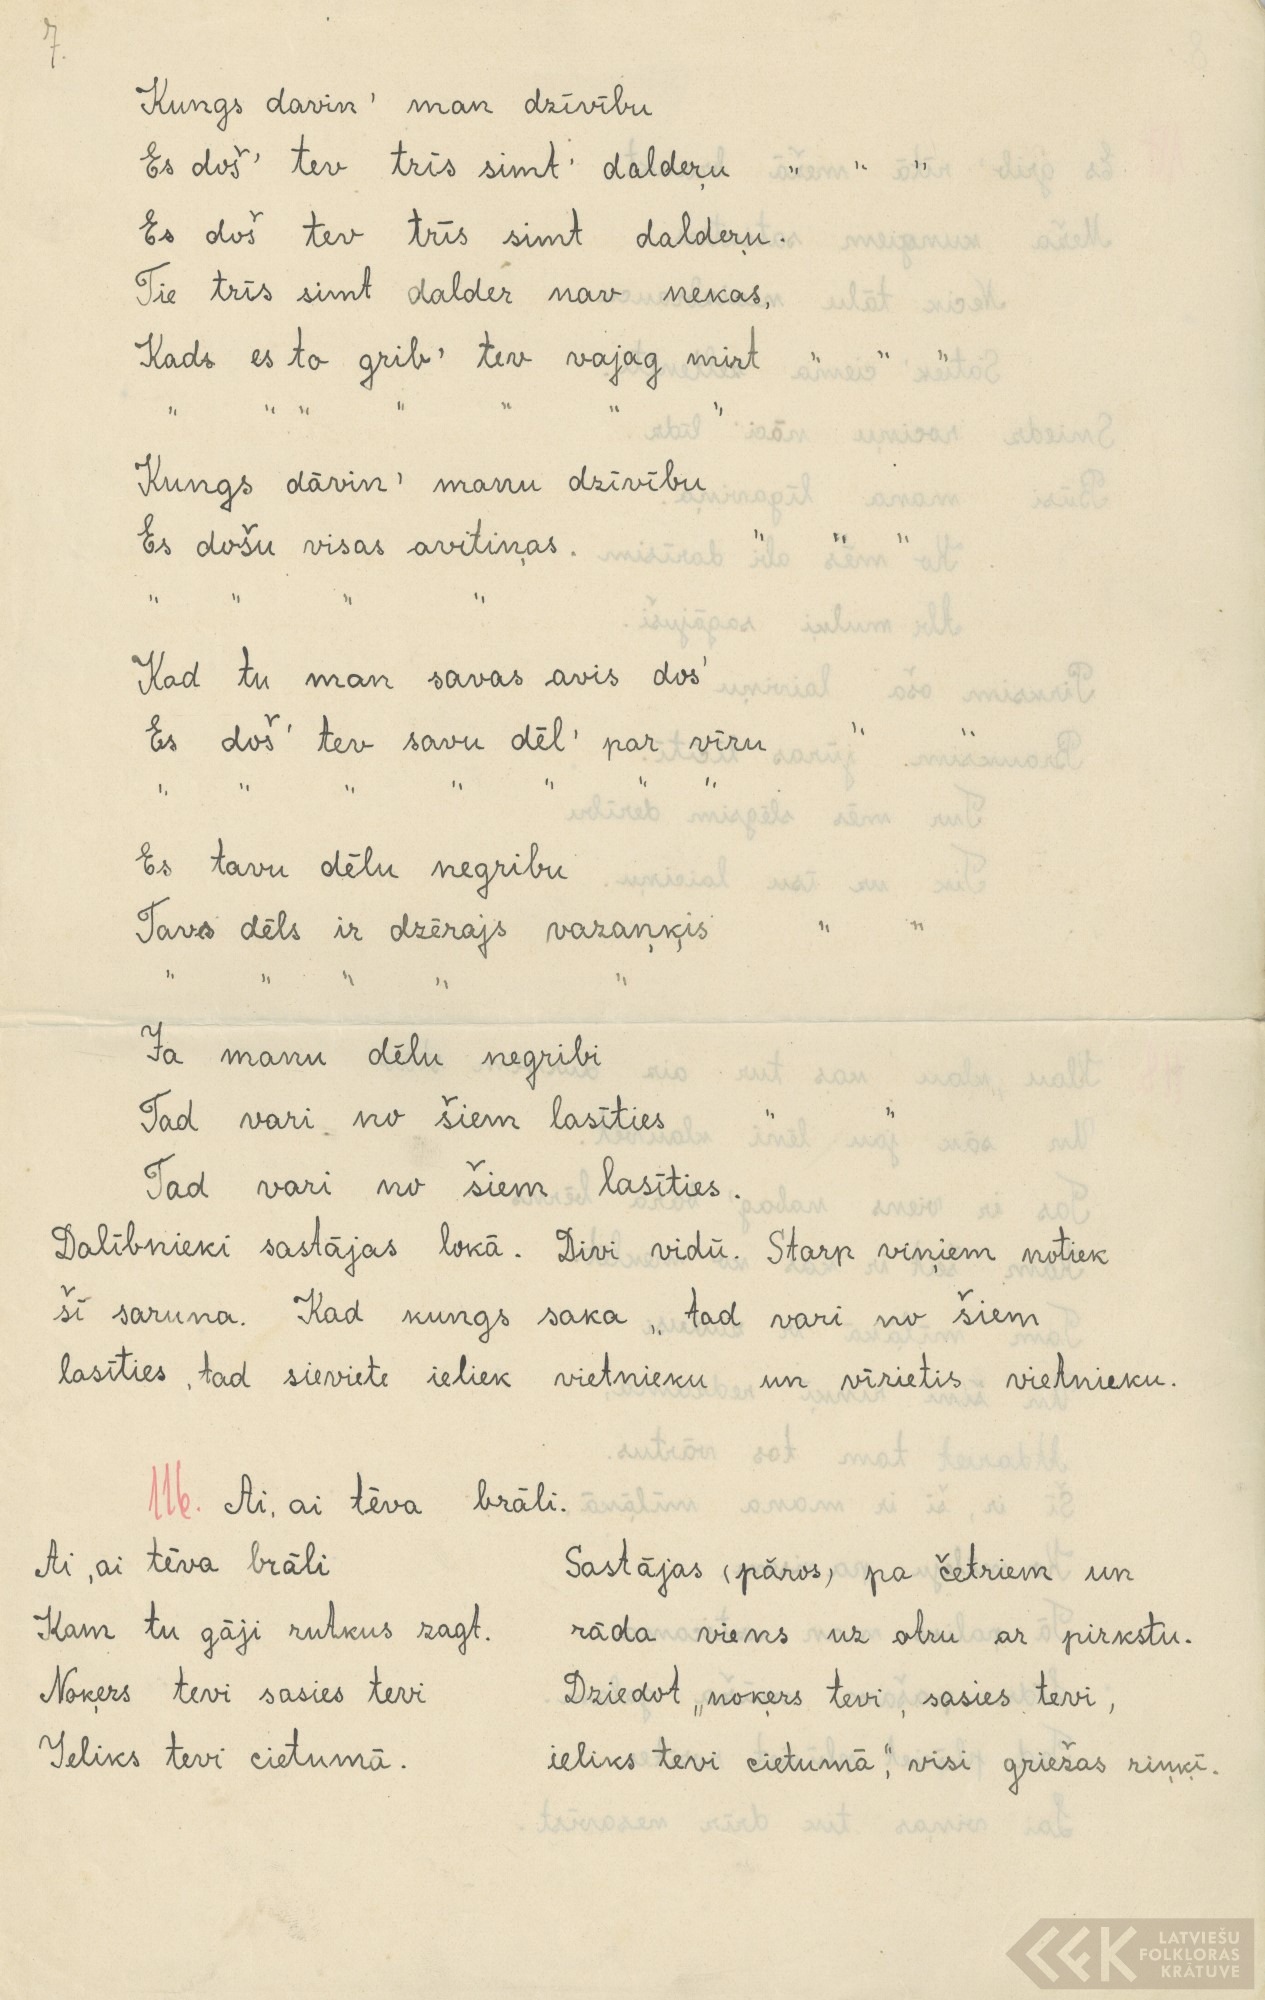 7.
Kungs davin' man dzīvību
Es doš' tev trīs simt' daldeŗu " " "
Es doš tev trīs simt daldeŗu.
Tie trīs simt dalder nav nekas,
Kads es to grib' tev vajag mirt " " "
" " " " " " "
Kungs dāvin' manu dzīvību
Es došu visas avitiņas. " " "
" " " "
Kad tu man savas avis dos'
Es doš' tev savu dēl' par vīru " "
" " " " " " "
Es tavu dēlu negribu
Tavs dēls ir dzērajs vazaņķis " "
" " " " "
Ja manu dēlu negribi
Tad vari no šiem lasīties " "
Tad vari no šiem lasīties.
Dalībnieki sastājas lokā. Divi vidū. Starp viņiem notiek
šī saruna. Kad kungs saka „tad vari no šiem
lasīties, tad sieviete ieliek vietnieku un vīrietis vietnieku.
116. Ai, ai tēva brāli.
Ai, ai tēva brāli
Kam tu gāji rutkus zagt.
Noķers tevi sasies tevi
Ieliks tevi cietumā.
Sastājas (pāros) pa četriem un
rāda viens uz otru ar pirkstu.
Dziedot „noķers tevi, sasies tevi,
ieliks tevi cietumā", visi griežas riņķī.
LATVIEŠU
FOLKLORAS
KRĀTUVE